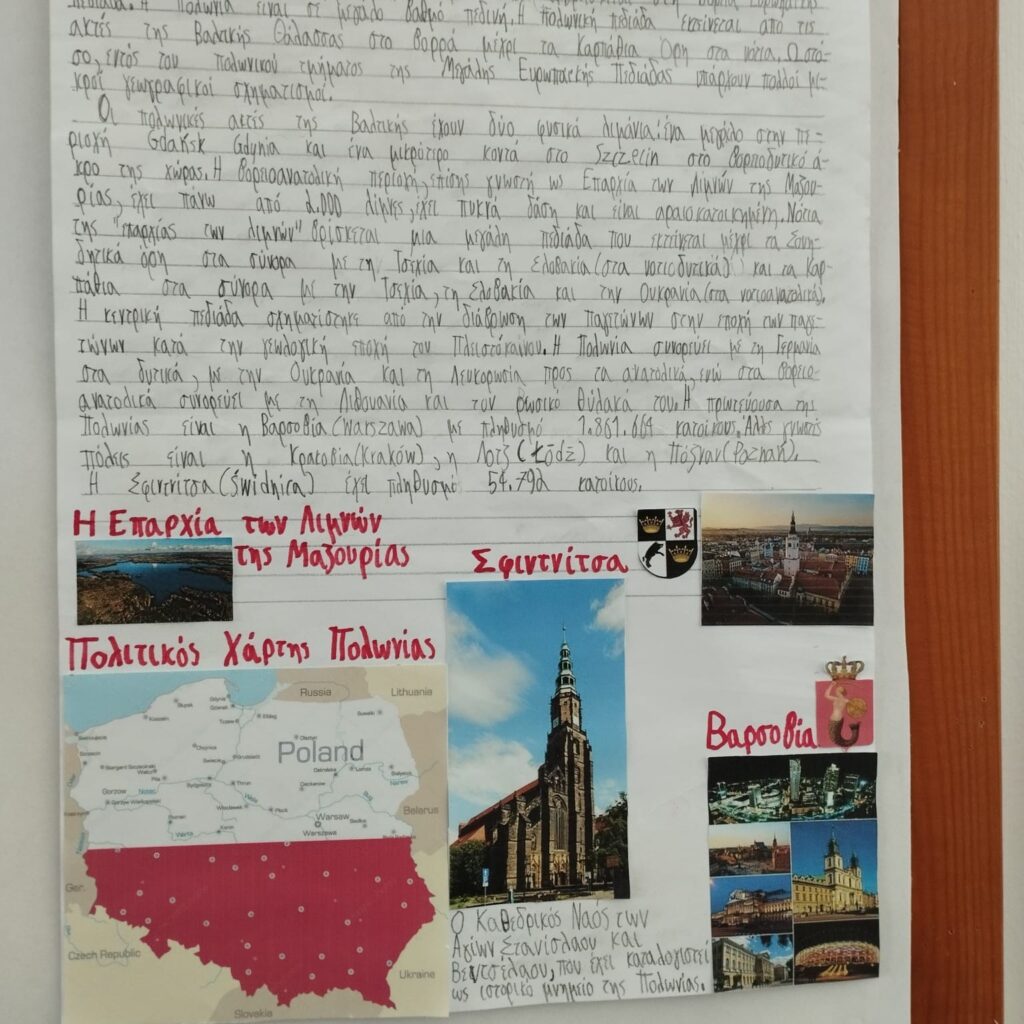 πεδιάδα. Η Πολωνία είναι σε μεγάλο βαθμό πεδινή. Η Πολωνική πεδιάδα εκτείνεται από τις
ακτές της Βαλτικής Θάλασσας στο βορρά μέχρι τα Καρπάθια Όρη στα νότια. Ωστό-
σο, εντός του πολωνικού τμήματος της Μεγάλης Ευρωπαϊκής Πεδιάδας υπάρχουν πολλοί μι-
κροί γεωγραφικοί σχηματισμοί.
Οι πολωνικές ακτές της Βαλτικής έχουν δύο φυσικά λιμάνια: ένα μεγάλο στην πε-
ριοχή Gdańsk Gdynia και ένα μικρότερο κοντά στο Szczecin στο βορειοδυτικό ά-
κρο της χώρας. Η βορειοανατολική περιοχή, επίσης γνωστή ως Επαρχία των Λιμνών της Μαζου-
ρίας, έχει πάνω από 2.000 λίμνες, έχει πυκνά δάση και είναι αραιοκατοικημένη. Νότια
της "επαρχίας των λιμνών" βρίσκεται μια μεγάλη πεδιάδα που εκτείνεται μέχρι τα Σου-
δητικά όρη στα σύνορα με τη Τσεχία και τη Σλοβακία (στα νοτιοδυτικά) και τα Καρ-
πάθια στα σύνορα με την Τσεχία, τη Σλοβακία και την Ουκρανία (στα νοτιοανατολικά).
Η κεντρική πεδιάδα σχηματίστηκε από την διάβρωση των παγετώνων στην εποχή των παγε-
τώνων κατά την γεωλογική εποχή του Πλειστόκαινου. Η Πολωνία συνορεύει με τη Γερμανία
στα δυτικά, με την Ουκρανία και τη Λευκορωσία προς τα ανατολικά, ενώ στα βορειο-
ανατολικά συνορεύει με τη Λιθουανία και τον ρωσικό θύλακα του. Η πρωτεύουσα της
Πολωνίας είναι η Βαρσοβία (Warszawa) με πληθυσμό 1.861.664 κατοίκους. Άλλες γνωστές
πόλεις είναι η Κρακοβία (Kraków), η Λοτζ (Łódź) και η Πόζναν (Poznań).
Η Σφιντνίτσα (Świdnica) έχει πληθυσμό 54.792 κατοίκους.
Η Επαρχία των Λιμνών
της Μαζουρίας
Σφιντνίτσα
Πολιτικός Χάρτης Πολωνίας
Russia
Lithuania
Poland
Warsaw
Warszawa
Belarus
Ger.
Czech Republic
Ukraine
Slovakia
Βαρσοβία
Ο Καθεδρικός Ναός των
Αγίων Στανίσλαου και
Βεντσέλαου, που έχει καταλογιστεί
ως ιστορικό μνημείο της Πολωνίας.